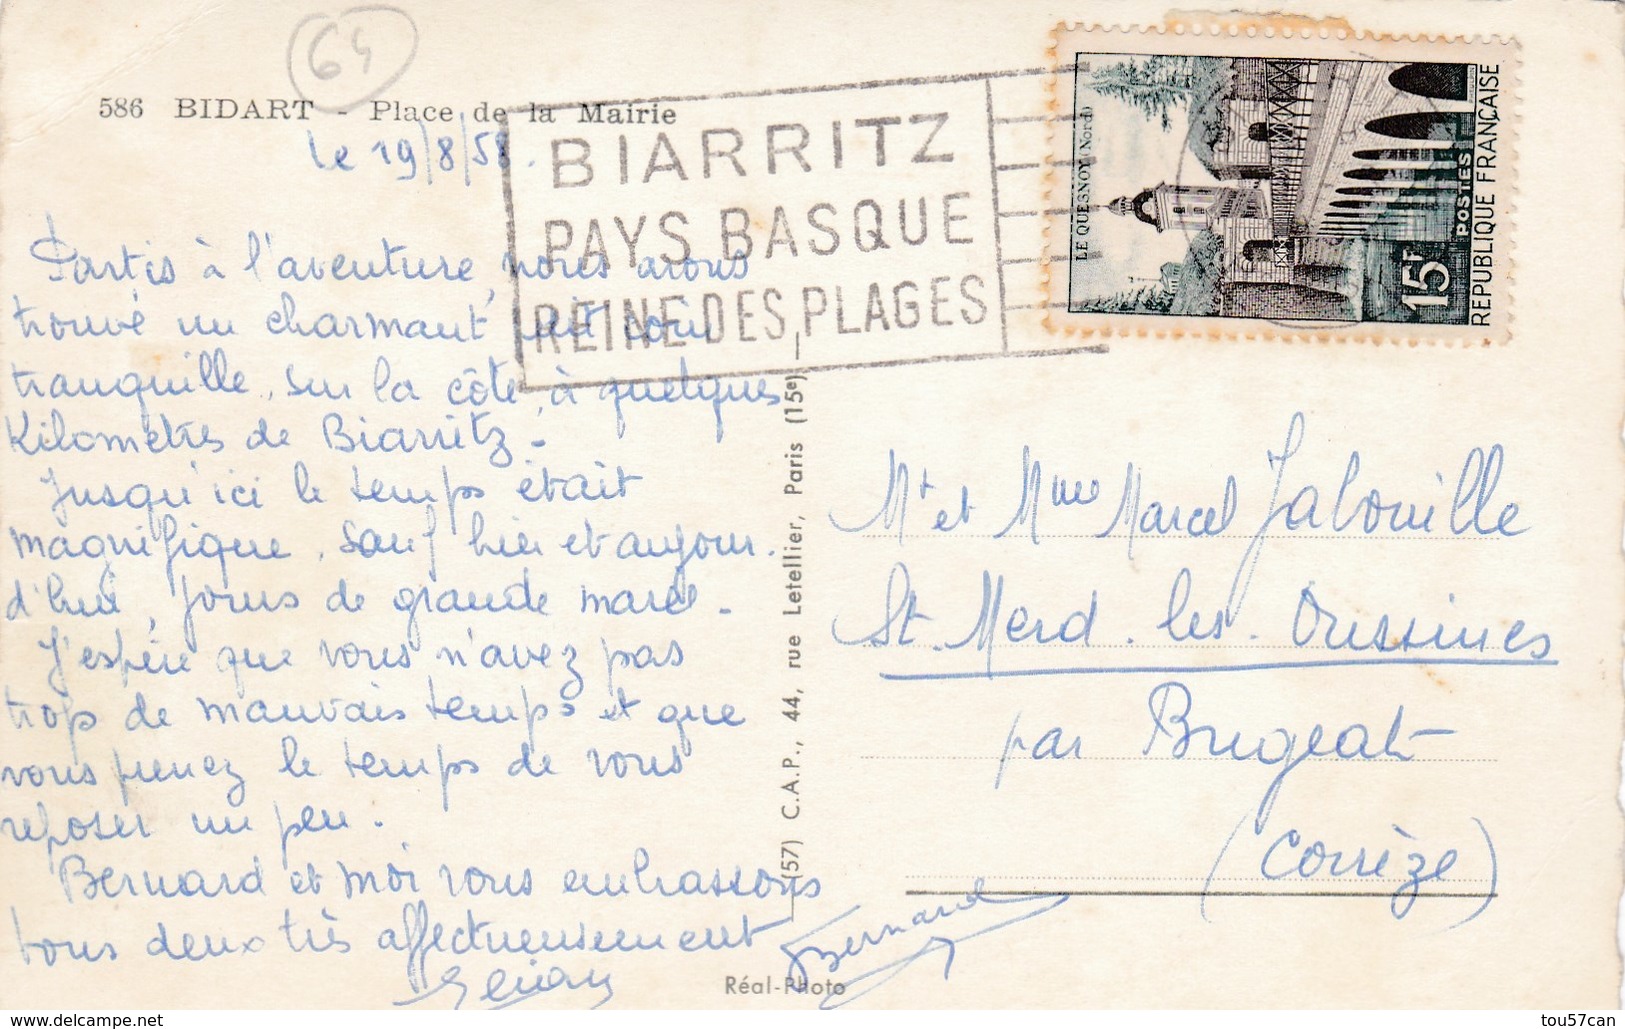 64
586 BIDART - Place de la Mairie
le 19/8/58.
BIARRITZ
PAYS BASQUE
REINE DES PLAGES
LE QUESNOY (Nord)
15F
POSTES
REPUBLIQUE FRANÇAISE
Partis à l'aventure, nous avons
trouvé un charmant petit coin
tranquille, sur la côte, à quelques
Kilomètres de Biarritz.
Jusqu'ici le temps était
magnifique, sauf hier et aujour-
d'hui, jours de grande marée.
J'espère que vous n'avez pas
trop de mauvais temps et que
vous prenez le temps de vous
reposer un peu.
Bernard et moi vous embrassons
tous deux très affectueusement
Bernard
(57) C.A.P., 44, rue Letellier, Paris (15e)
Réal-Photo
Mr et Mme Marcel Jabouille
St. Merd. les. Oussines
par Bugeat
(Corrèze)
delcampe.net
tou57can